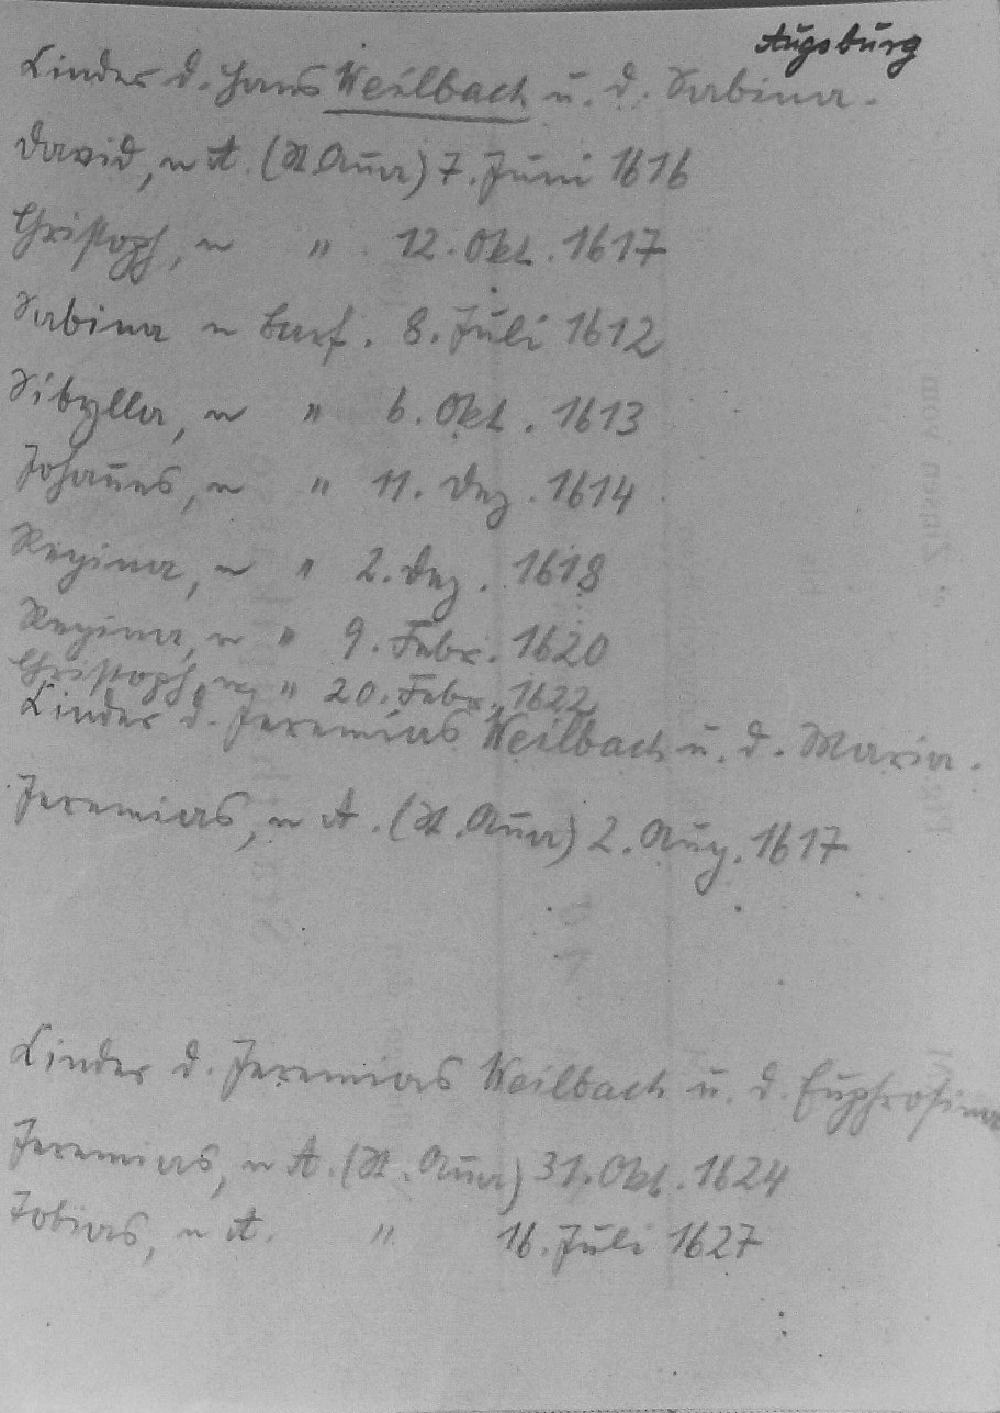 Augsburg
Kinder d. Hans Weilbach u. d. Sabina.
David, ~ A. (St. Anna) 7. Juni 1616
Christoph, ~ " . 12. Okt. 1617
Sabina ~ Barf. 8. Juli 1612
Sibylla, ~ " 6. Okt. 1613
Johannes, ~ " 11. Dez. 1614
Regina, ~ " 2. Dez. 1618
Regina, ~ " 9. Febr. 1620
Christoph, ~ " 20. Febr. 1622
Kinder d. Jeremias Weilbach u. d. Maria.
Jeremias, ~ A. (St. Anna) 2. Aug. 1617
Kinder d. Jeremias Weilbach u. d. Euphrosina
Jeremias, ~ A. (St. Anna) 31. Okt. 1624
Tobias, ~ A. " 16. Juli 1627